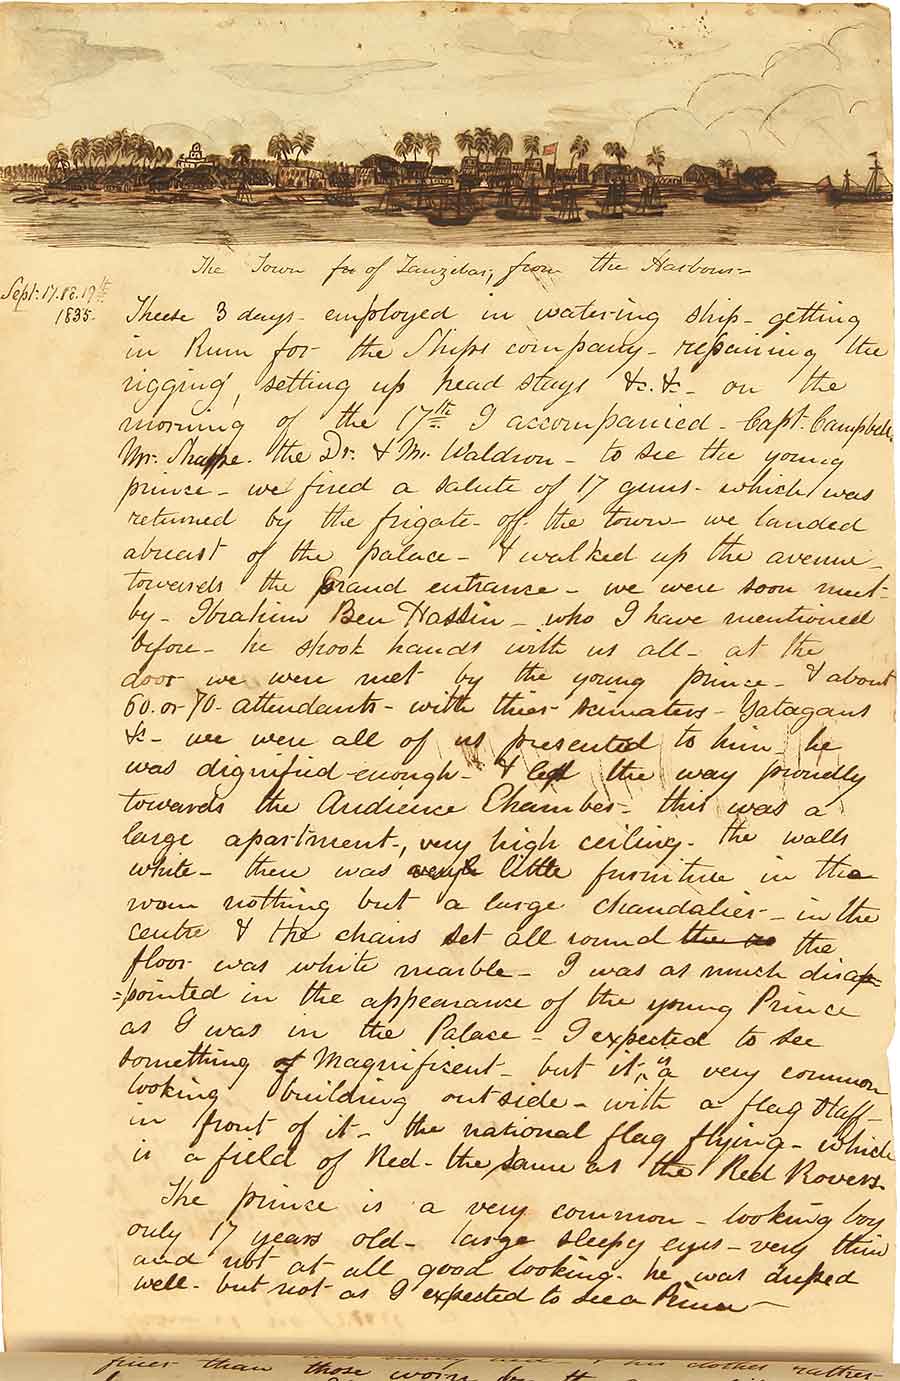 The Town for of Zanzibar, from the Harbour-
Sept: 17.18.19th
1835.
Theese 3 days- employed in watering ship- getting
in Rum for the Ships company- repairing the
rigging, setting up head stays &c. &c- on the
morning of the 17th I accompanied- Capt. Campbell,
Mr. Sharpe. the Dr. & Mr. Waldron- to see the young
prince- we fired a salute of 17 guns- which was
returned by the frigate- off- the town- we landed
abreast of the palace- & walked up the avenue-
towards the Grand entrance- we were soon meet-
by- Ibrahim Ben Hassin- who I have mentioned
before- he shook hands with us all- at the
door we were met by the young prince- & about
60. or 70- attendants- with thier scimaters- Yatagans
&c- we were all of us presented to him- he
was dignified enough- & led the way proudly
towards the Audience Chamber- this was a
large apartment-, very high ceiling- the walls
white- there was very little furniture in the
room nothing but a large chandalier- in the
centre & the chairs set all round the the
floor was white marble- I was as much disap-
=pointed in the appearance of the young Prince
as I was in the Palace- I expected to see
something of Magnificent- but it is a very common
looking building outside- with a flag staff-
in front of it- the national flag flying- which
is a field of Red- the same as the Red Rovers
The prince is a very common- looking boy
only 17 years old- large sleepy eyes- very thin
and not at all good looking- he was dressed
well- but not as I expected to see a Prince-
finer than those worn by the his clothes rather-